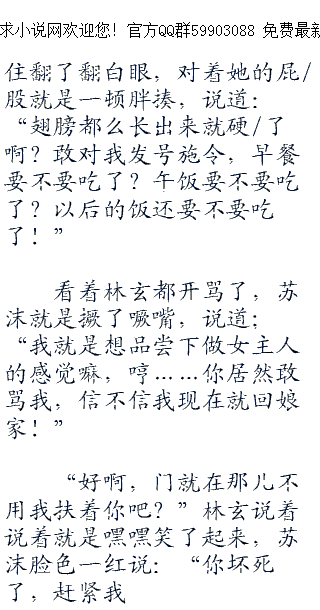 求小说网欢迎您！官方QQ群59903088 免费最新
住翻了翻白眼，对着她的屁/
股就是一顿胖揍，说道：
“翅膀都么长出来就硬/了
啊？敢对我发号施令，早餐
要不要吃了？午饭要不要吃
了？以后的饭还要不要吃
了！”
看着林玄都开骂了，苏
沫就是撅了噘嘴，说道：
“我就是想品尝下做女主人
的感觉嘛，哼……你居然敢
骂我，信不信我现在就回娘
家！”
“好啊，门就在那儿不
用我扶着你吧？”林玄说着
说着就是嘿嘿笑了起来，苏
沫脸色一红说：“你坏死
了，赶紧我